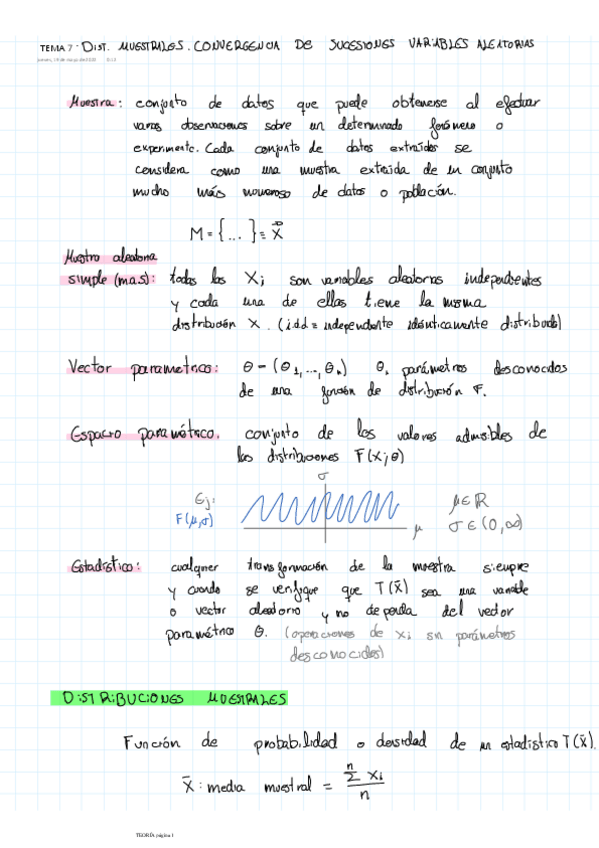 TEMA 7 - DIST. MUESTRALES. CONVERGENCIA DE SUCESIONES VARIABLES ALEATORIAS
Muestra: conjunto de datos que puede obtenerse al efectuar
varias observaciones sobre un determinado fenómeno o
experimento. Cada conjunto de datos extraídos se
considera como una muestra extraída de un conjunto
mucho más numeroso de datos o población.
M = {...} ≡ X⃗
Muestra aleatoria
simple (m.a.s): todas las Xi son variables aleatorias independientes
y cada una de ellas tiene la misma
distribución X. (i.d.d = independiente idénticamente distribuida)
Vector parametrico: θ - (θ1, ..., θn) θ, parámetros desconocidos
de una función de distribución F.
Espacio paramétrico. conjunto de los valores admisibles de
las distribuciones F(x;θ)
σ
Ej:
F(μ,σ)
μ
μ∈ℝ
σ∈(0,∞)
Estadístico: cualquier transformación de la muestra siempre
y cuando se verifique que T(x̄) sea una variable
o vector aleatorio y no dependa del vector
paramétrico θ. (operaciones de xi sin parámetros
desconocidos)
DISTRIBUCIONES MUESTRALES
Función de probabilidad o densidad de un estadístico T(x̄).
X̄: media muestral = n Σ xi / n
TEORÍA página 1